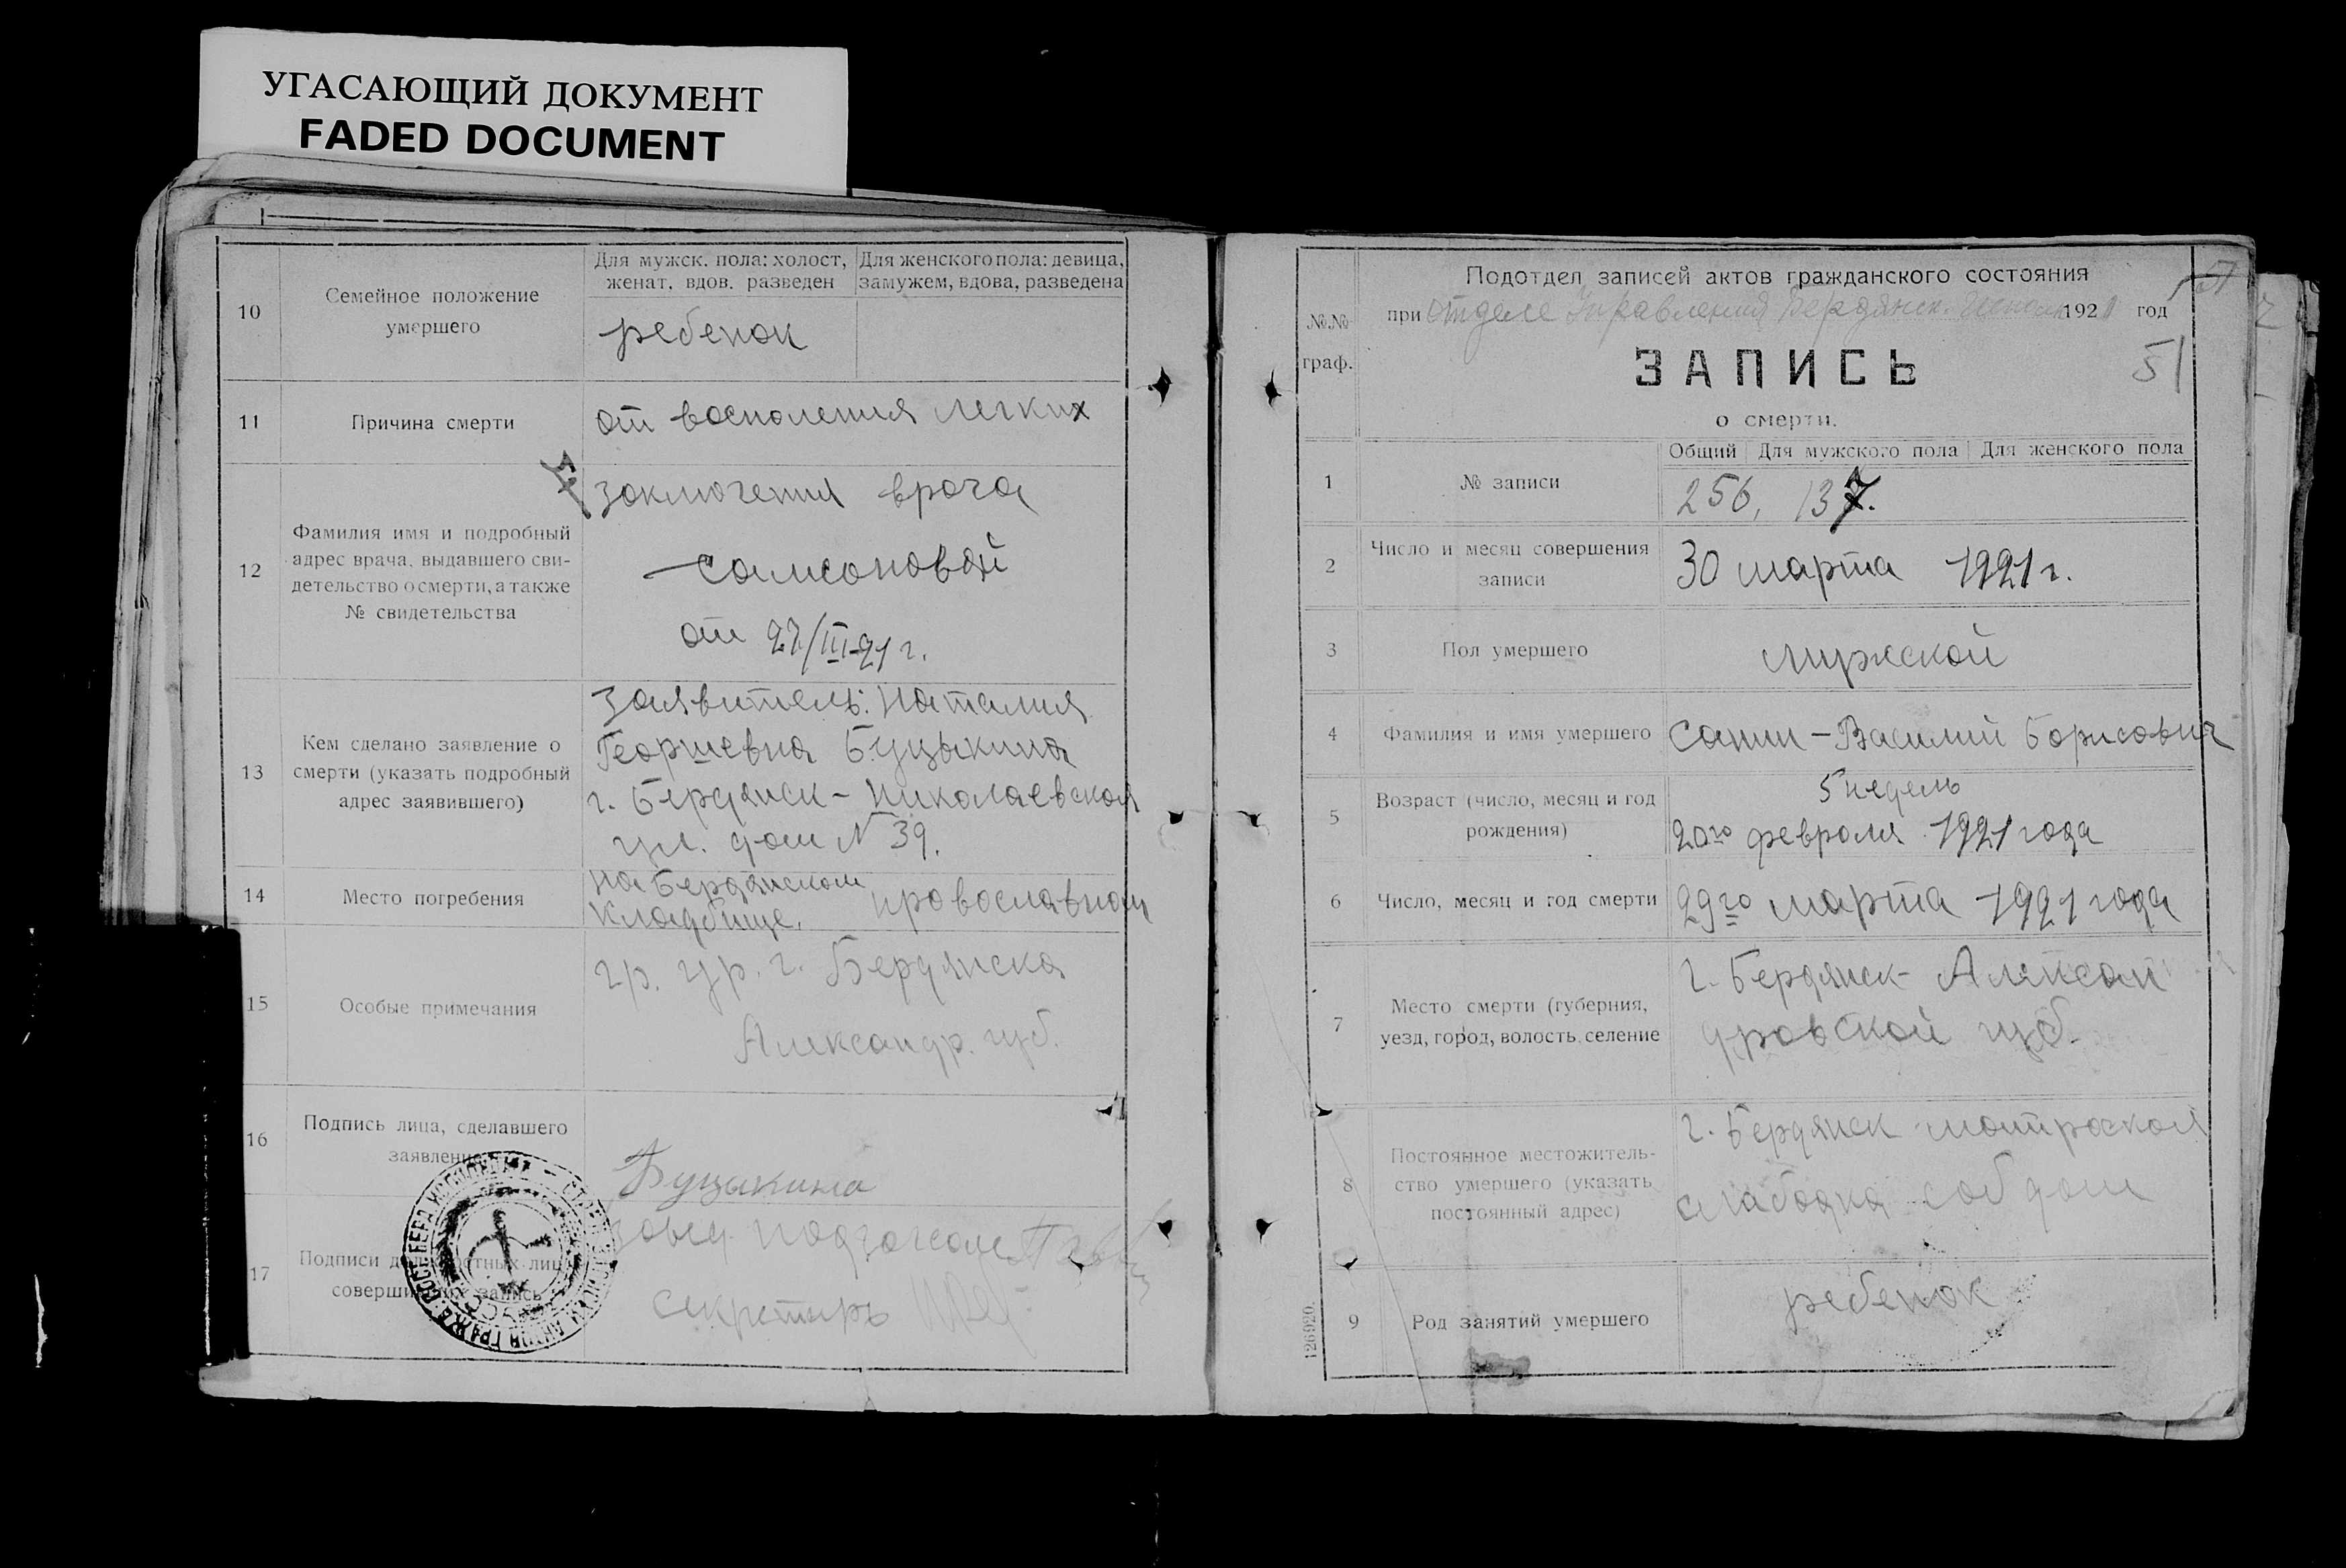 УГАСАЮЩИЙ ДОКУМЕНТ
FADED DOCUMENT
10
Семейное положение
умершего
Для мужск. пола: холост,
женат, вдов. разведен
Для женского пола: девица,
замужем, вдова, разведена
ребенок
11
Причина смерти
от восполения легких
12
Фамилия имя и подробный
адрес врача, выдавшего сви-
детельство о смерти, а также
№ свидетельства
заключения врача
Самсоновай
от 27/III-21 г.
13
Кем сделано заявление о
смерти (указать подробный
адрес заявившего)
Заявитель: Наталия
Георгиевна Буцыкина
г. Бердянск - Николаевская
ул. дом № 39.
14
Место погребения
на Бердянском православном
кладбище.
15
Особые примечания
гр. ур. г. Бердянска
Александр. губ.
16
Подпись лица, сделавшего
заявление
Буцыкина
17
Подписи должностных лиц
совершивших запись
Завед. подзагсом
Секретарь
№№
граф.
Подотдел записей актов гражданского состояния
при отделе Управления Бердянск. 1921 год
51
ЗАПИСЬ
о смерти.
1
№ записи
Общий Для мужского пола Для женского пола
256, 137.
2
Число и месяц совершения
записи
30 марта 1921 г.
3
Пол умершего
мужской
4
Фамилия и имя умершего
Санин - Василий Борисович
5
Возраст (число, месяц и год
рождения)
5 недель
20го февраля 1921 года
6
Число, месяц и год смерти
29го марта 1921 года
7
Место смерти (губерния,
уезд, город, волость, селение
г. Бердянск - Алексан
дровской губ.
8
Постоянное местожитель-
ство умершего (указать
постоянный адрес)
г. Бердянск матроская
слабодка соб дом
9
Род занятий умершего
ребенок
126920.